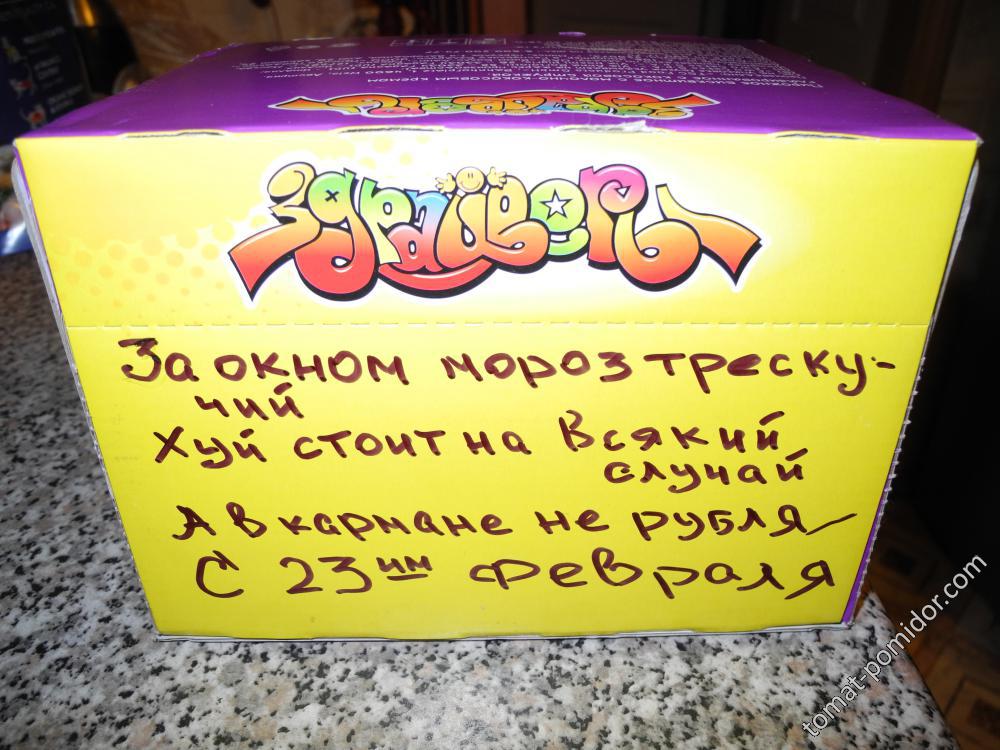 Здрайверы
За окном мороз треску-
чий
Хуй стоит на всякий
случай
А в кармане не рубля
С 23им Февраля
tomat-pomidor.com